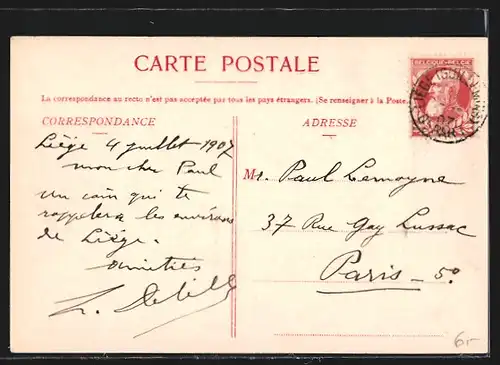 CARTE POSTALE
BELGIQUE-BELGIË
La correspondance au recto n'est pas acceptée par tous les pays étrangers. (Se renseigner à la Poste.)
CORRESPONDANCE
ADRESSE
Liège 4 juillet 1907
mon cher Paul
un coin qui te
rappelera les environs
de Liège.
amitiés
Mr. Paul Lemoyne
37 Rue Gay Lussac
Paris - 5º
6,-